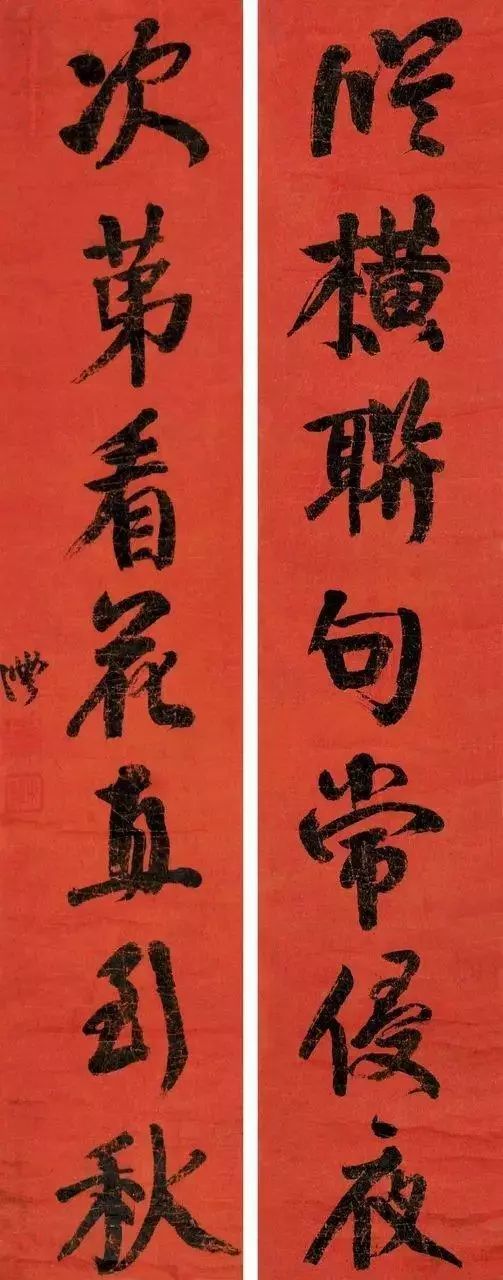 從橫聯句常侵夜
次第看花直到秋